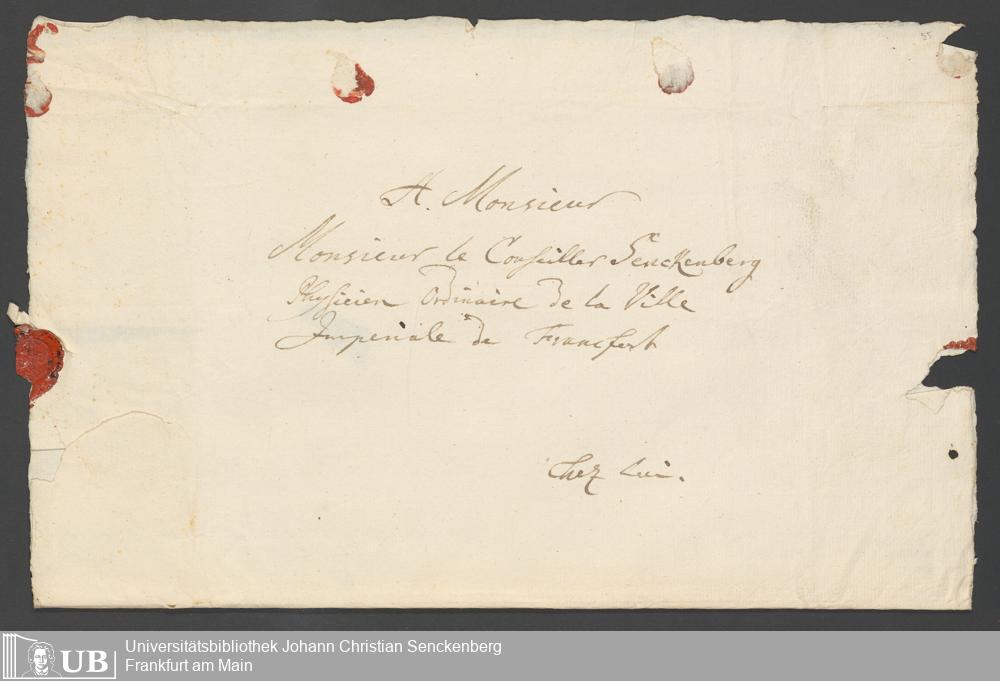 55
A. Monsieur
Monsieur le Conseiller Senckenberg
Physicien Ordinaire de la Ville
Imperiale de Francfort
Chez lui.
UB
Universitätsbibliothek Johann Christian Senckenberg
Frankfurt am Main